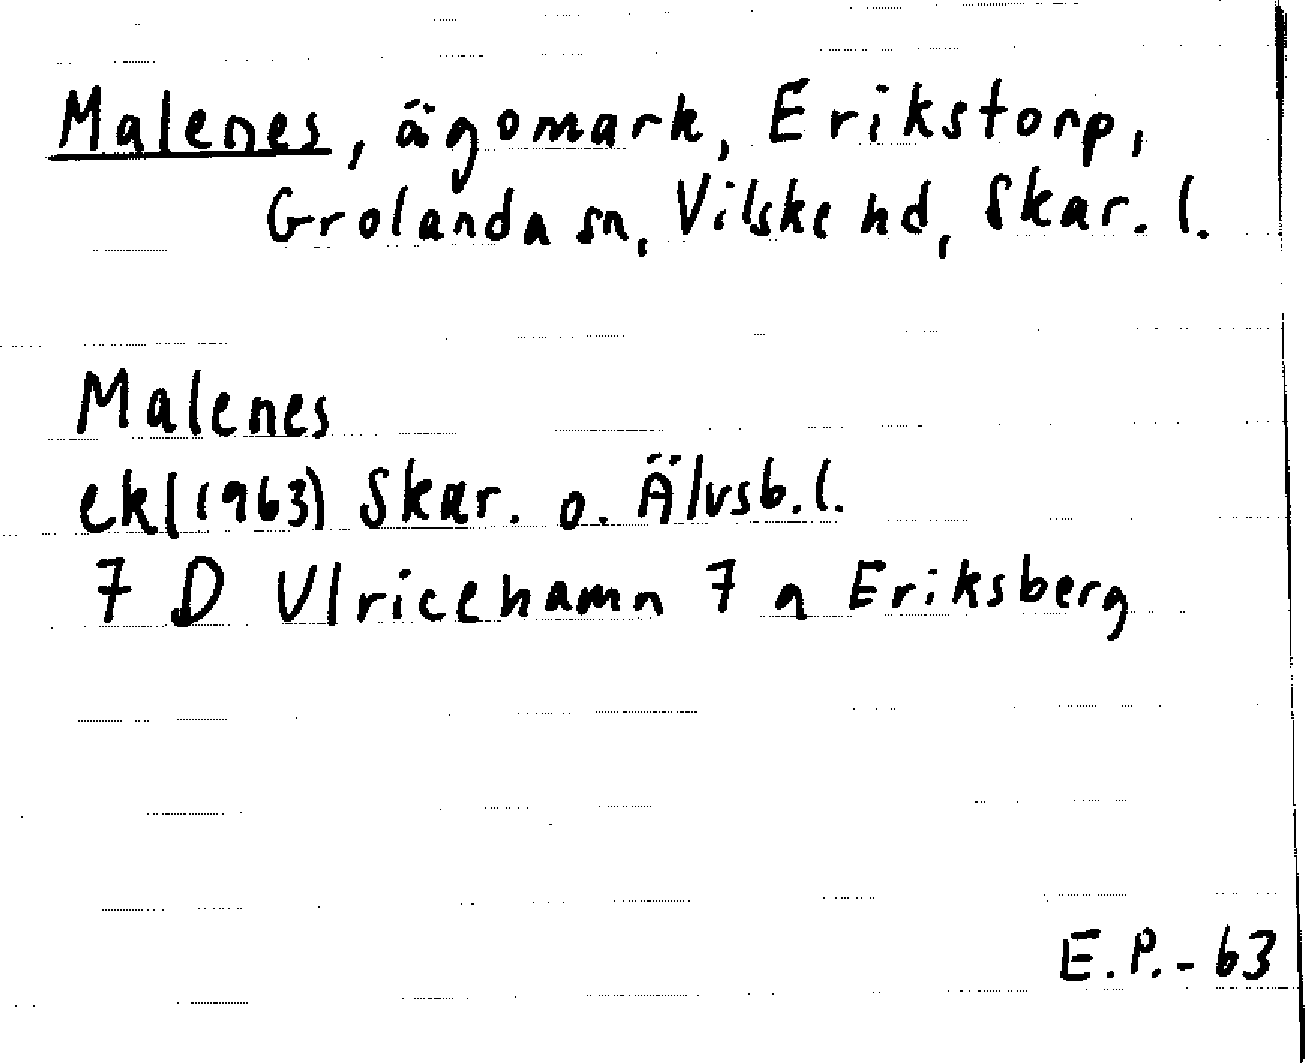 Malenes, ägomark, Erikstorp,
Grolanda sn, Vilske hd, Skar. l.
Malenes
ek(1963) Skar. o. Älvsb. l.
7 D Ulricehamn 7 a Eriksberg
E.P.-63